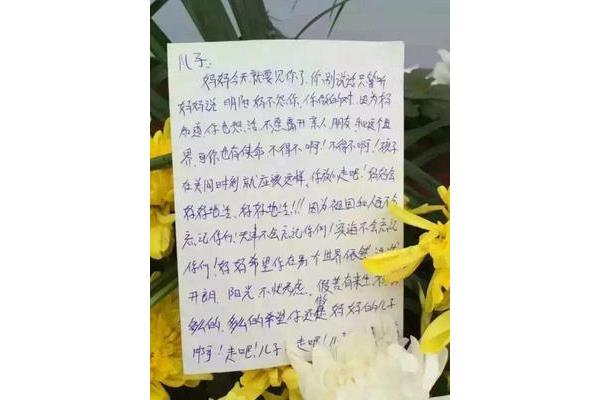 儿子:
妈妈今天就要见你了,你别说话只管听
妈妈说 明阳妈不怨你,你做的对,因为妈
知道你也想活,不愿离开亲人,朋友,和这个世
界,可你也有使命 不得不啊!不得不啊!孩子
在关闭时刻就应该这样,你放心走吧!妈妈会
好好地活,好好地活!!!因为祖国和人民不会
忘记你们!天津不会忘记你们!滨海不会忘记
你们!妈妈希望你在另个世界依然活泼
开朗,阳光,不忧不虑。假若有来生,
多么的,多么的希望你还做妈妈的儿子
啊!走吧!儿子 走吧!儿